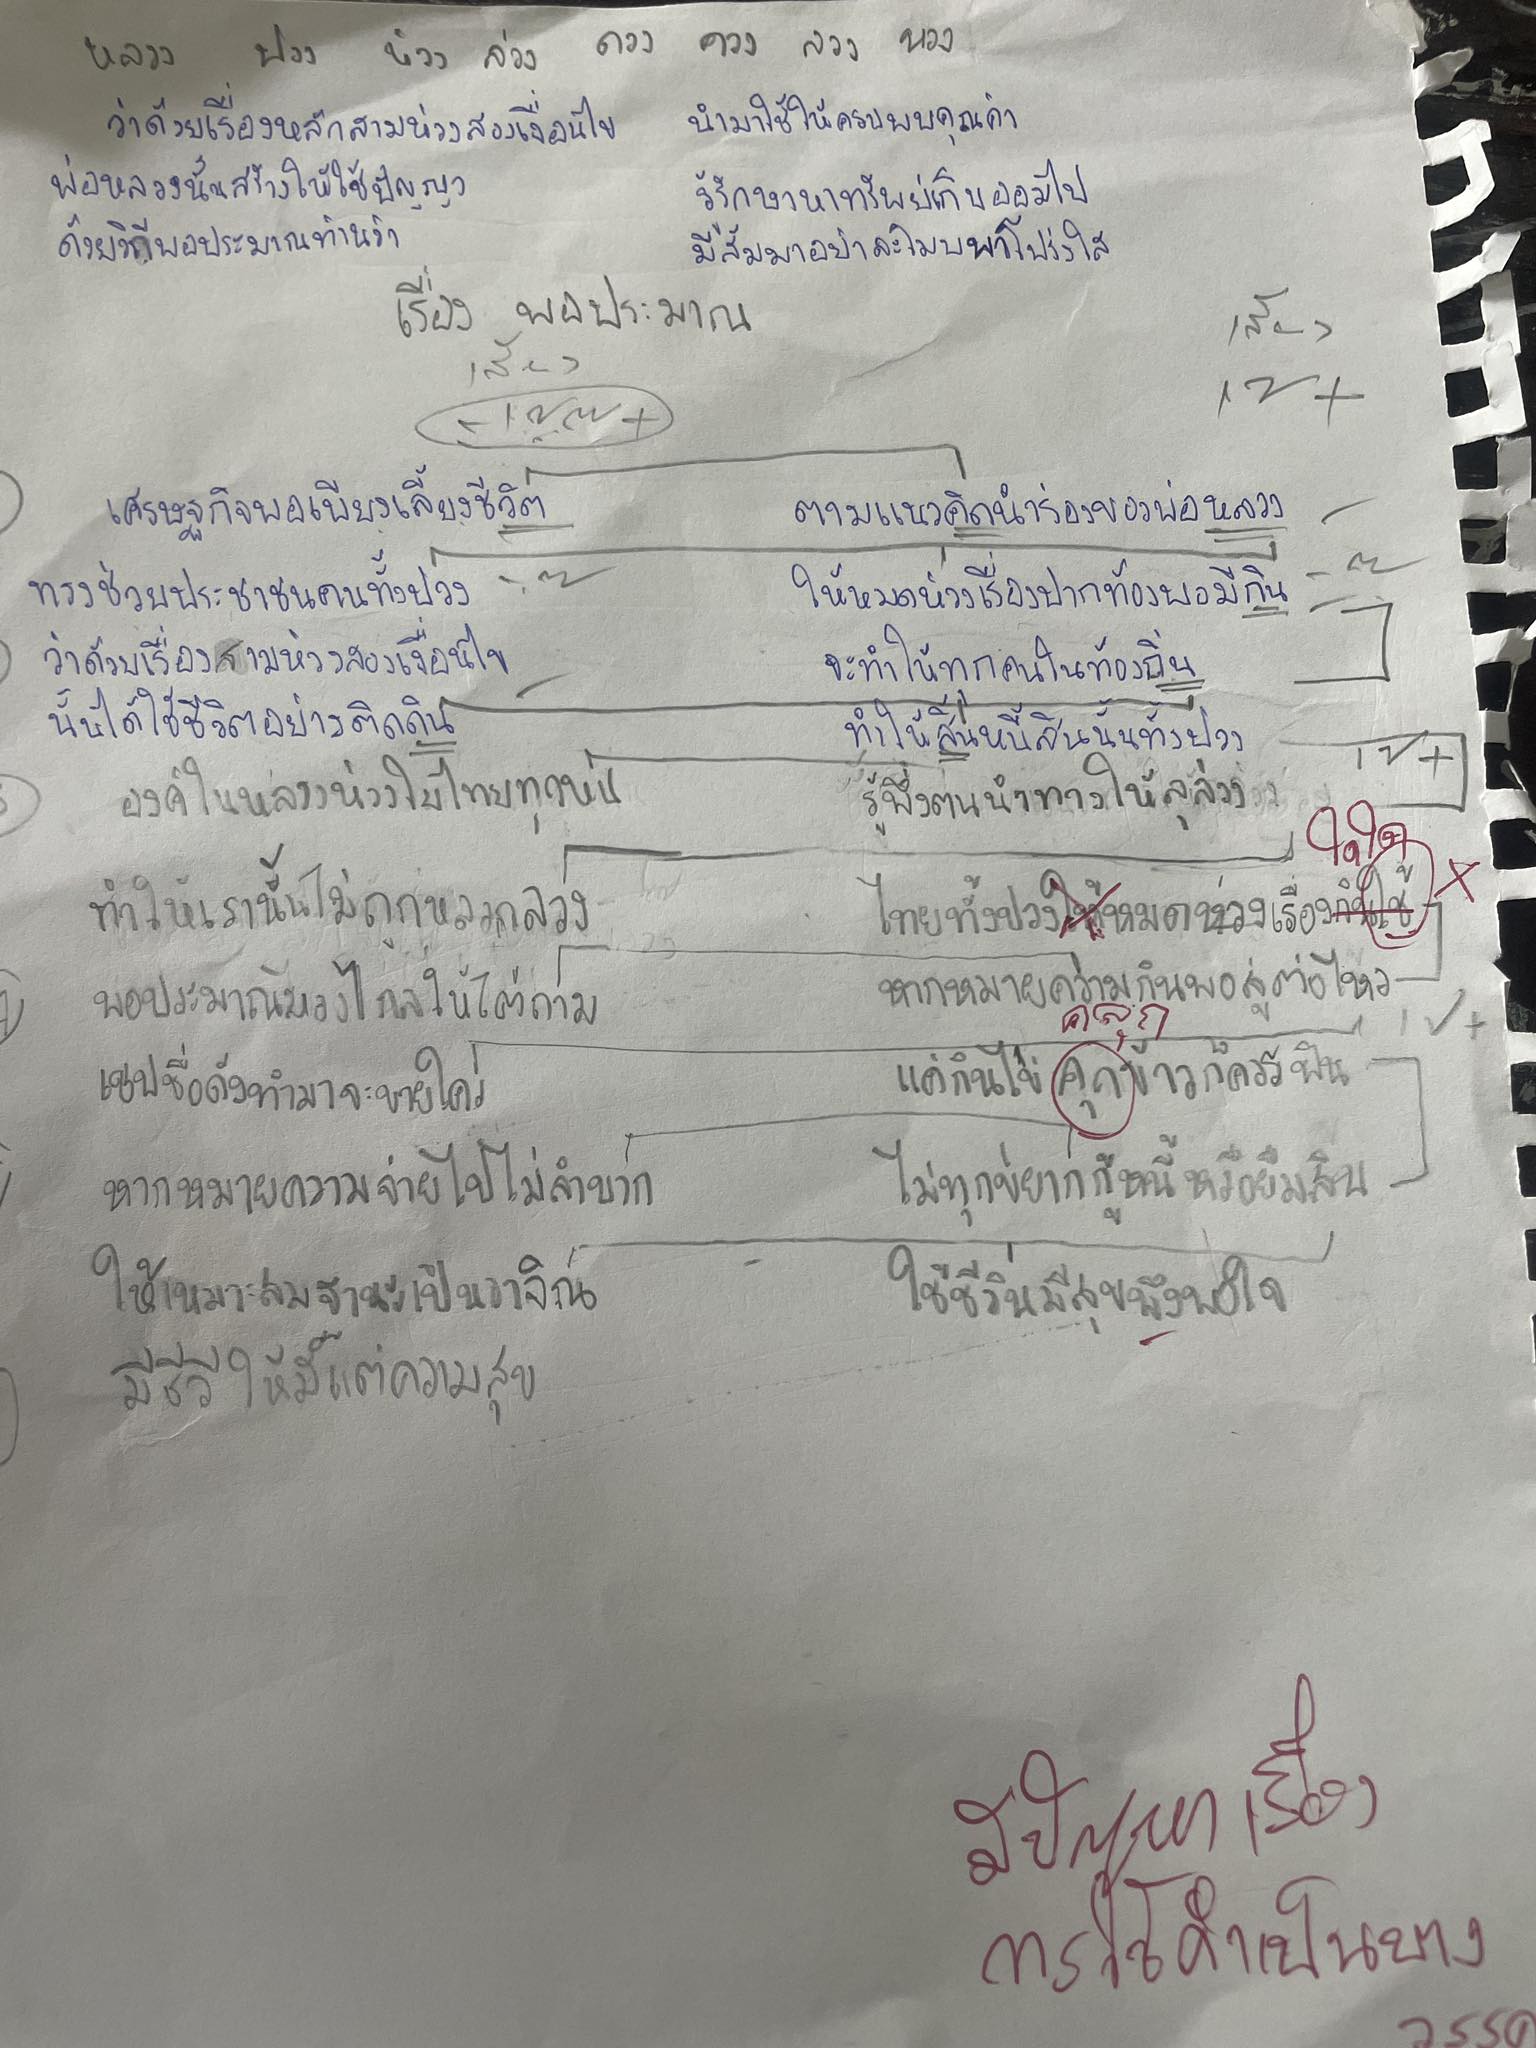 หลวง ปวง ห่วง ล่วง ดวง ควง ลวง
ว่าด้วยเรื่องหลักสามห่วงสองเงื่อนไข นำมาใช้ให้ครบพบคุณค่า
พ่อหลวงนั้นสร้างให้ใช้ปัญญา รู้รักษาหาทรัพย์เก็บออมไป
ด้วยวิถีพอประมาณ มีสัมมาอย่าละโมบ โปร่งใส
เรื่อง พอประมาณ
เสียง
เสียง
เศรษฐกิจพอเพียงเลี้ยงชีวิต ตามแนวคิดนำร่องของพ่อหลวง
ทรงช่วยประชาชนคนทั้งปวง ให้หมดห่วงเรื่องปากท้องพอมีกิน
ว่าด้วยเรื่องสามห่วงสองเงื่อนไข จะทำให้ทุกคนในท้องถิ่น
นั้นได้ใช้ชีวิตอย่างติดดิน ทำให้สิ้นหนี้สินนั้นทั้งปวง
องค์ในหลวงห่วงใยไทยทุกหน รู้พึ่งตนนำทางให้ลุล่วง
ใดใด
ทำให้เรานั้นไม่ถูกหลอกลวง ไทยทั้งปวงให้หมดห่วงเรื่องกินใช้
พอประมาณ ให้ไต่ถาม หากหมายความกินพอสู้ต่อไหว
คลุก
เชฟชื่อดังทำมาจะขายใคร แค่กินไข่คุกข้าวก็ควรฟิน
หากหมายความจ่ายไปไม่ลำบาก ไม่ทุกข์ยากกู้หนี้หรือยืมสิน
ให้เหมาะสมฐานะเป็นอาจิณ ใช้ชีวินมีสุขพึงพอใจ
มีชีวี ให้มีแต่ความสุข
มีปัญหาเรื่อง
การใช้คำเป็นบาง
วรรค